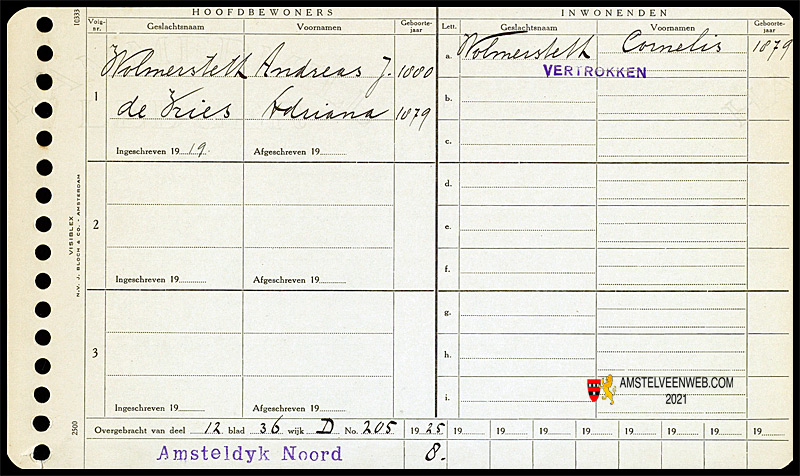 HOOFDBEWONERS
Volg-nr. Geslachtsnaam Voornamen Geboorte-jaar
1 Wolmerstett Andreas J. 1880
de Vries Adriana 1879
Ingeschreven 19 19. Afgeschreven 19
2
Ingeschreven 19 Afgeschreven 19
3
Ingeschreven 19 Afgeschreven 19
INWONENDEN
Lett. Geslachtsnaam Voornamen Geboorte-jaar
a. Wolmerstett Cornelis 1879
VERTROKKEN
b.
c.
d.
e.
f.
g.
h.
i.
AMSTELVEENWEB.COM
2021
Overgebracht van deel 12 blad 36 wijk D No. 205 1925 19 19 19 19 19 19 19 19
Amsteldyk Noord 8.
10333
VISIBLEX
N.V. J. BLOCH & CO. - AMSTERDAM
2500